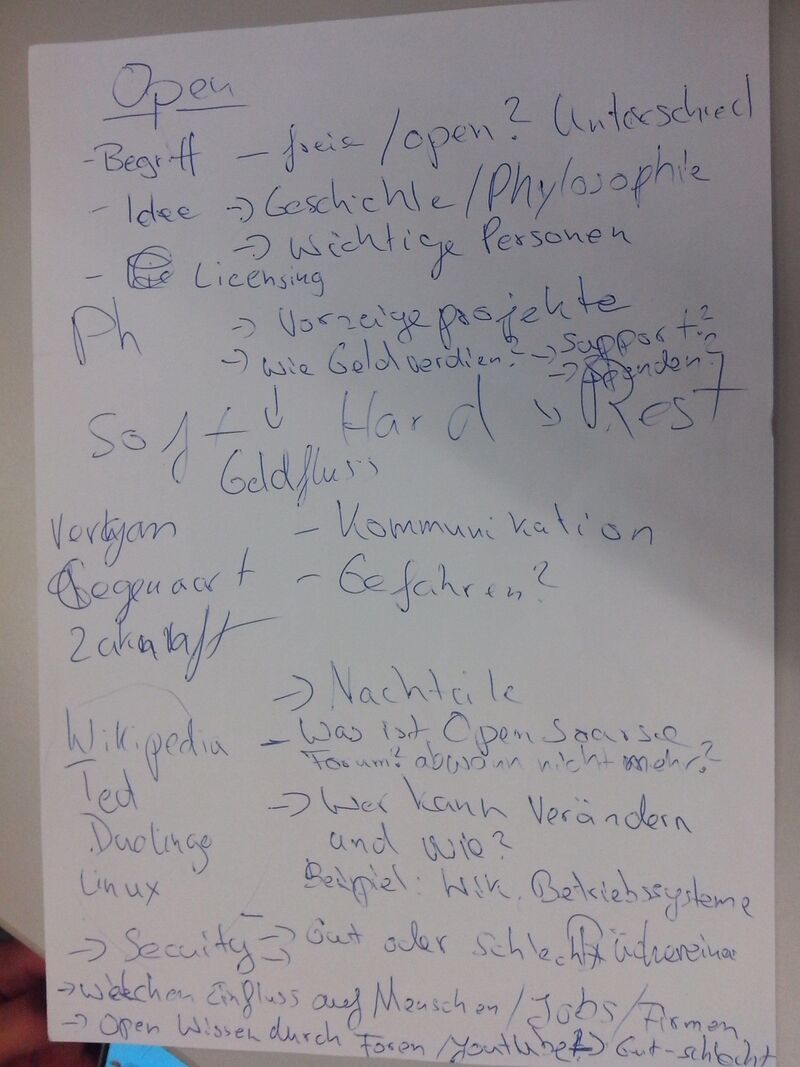 Open
- Begriff - freie / open? Unterschied
- Idee -> Geschichte / Phylosophie
-> Wichtige Personen
- Licensing
Ph -> Vorzeigeprojekte
-> Wie Geld verdien? -> Support?
-> Spenden?
Soft ↓ Hard ↘ Rest
Geldfluss
Vergan - Kommunikation
Gegenwart - Gefahren?
Zukunft
-> Nachteile
Wikipedia - Was ist Open Soarse
Forum? abwann nicht mehr?
Ted
-> Wer kann Verändern
Duolingo und Wie?
Linux Beispiel: Wik, Betriebssysteme
-> Secuity -> Gut oder schlecht
-> Welchen Einfluss auf Menschen / Jobs / Firmen
-> Open Wissen durch Foren / Youtube? -> Gut-schlecht